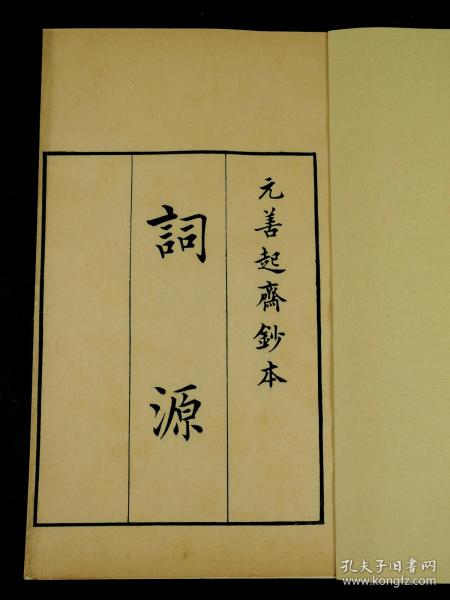 元善起齋鈔本
詞源
孔夫子旧书网
www.kongfz.com